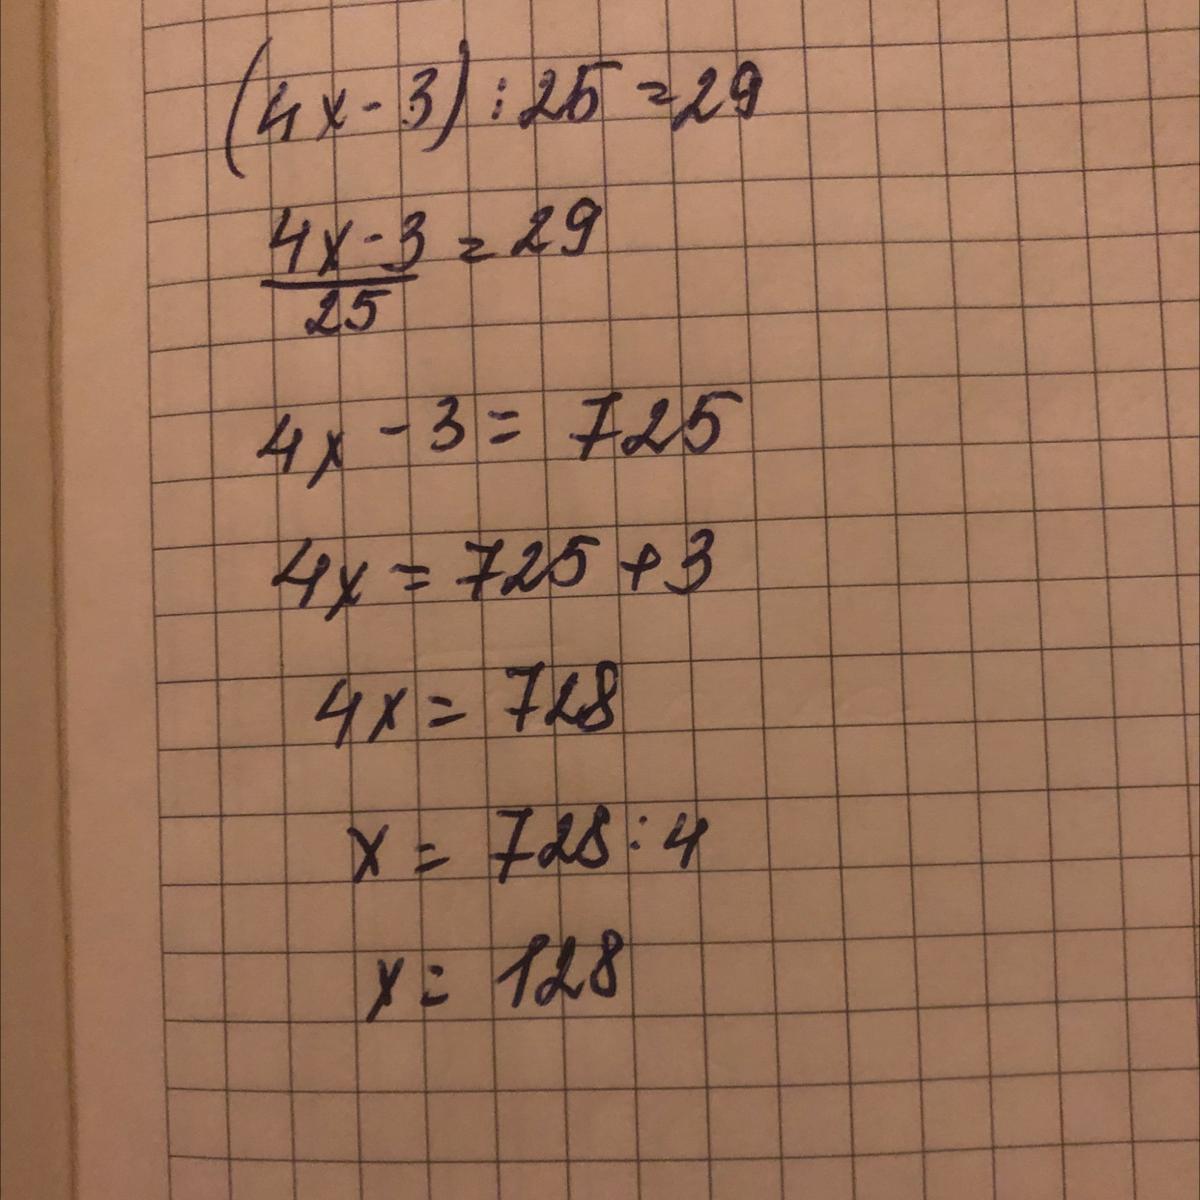 (4x-3):25=29
4x-3
25
=29
4x-3=725
4x=725+3
4x=728
x=728:4
x=128